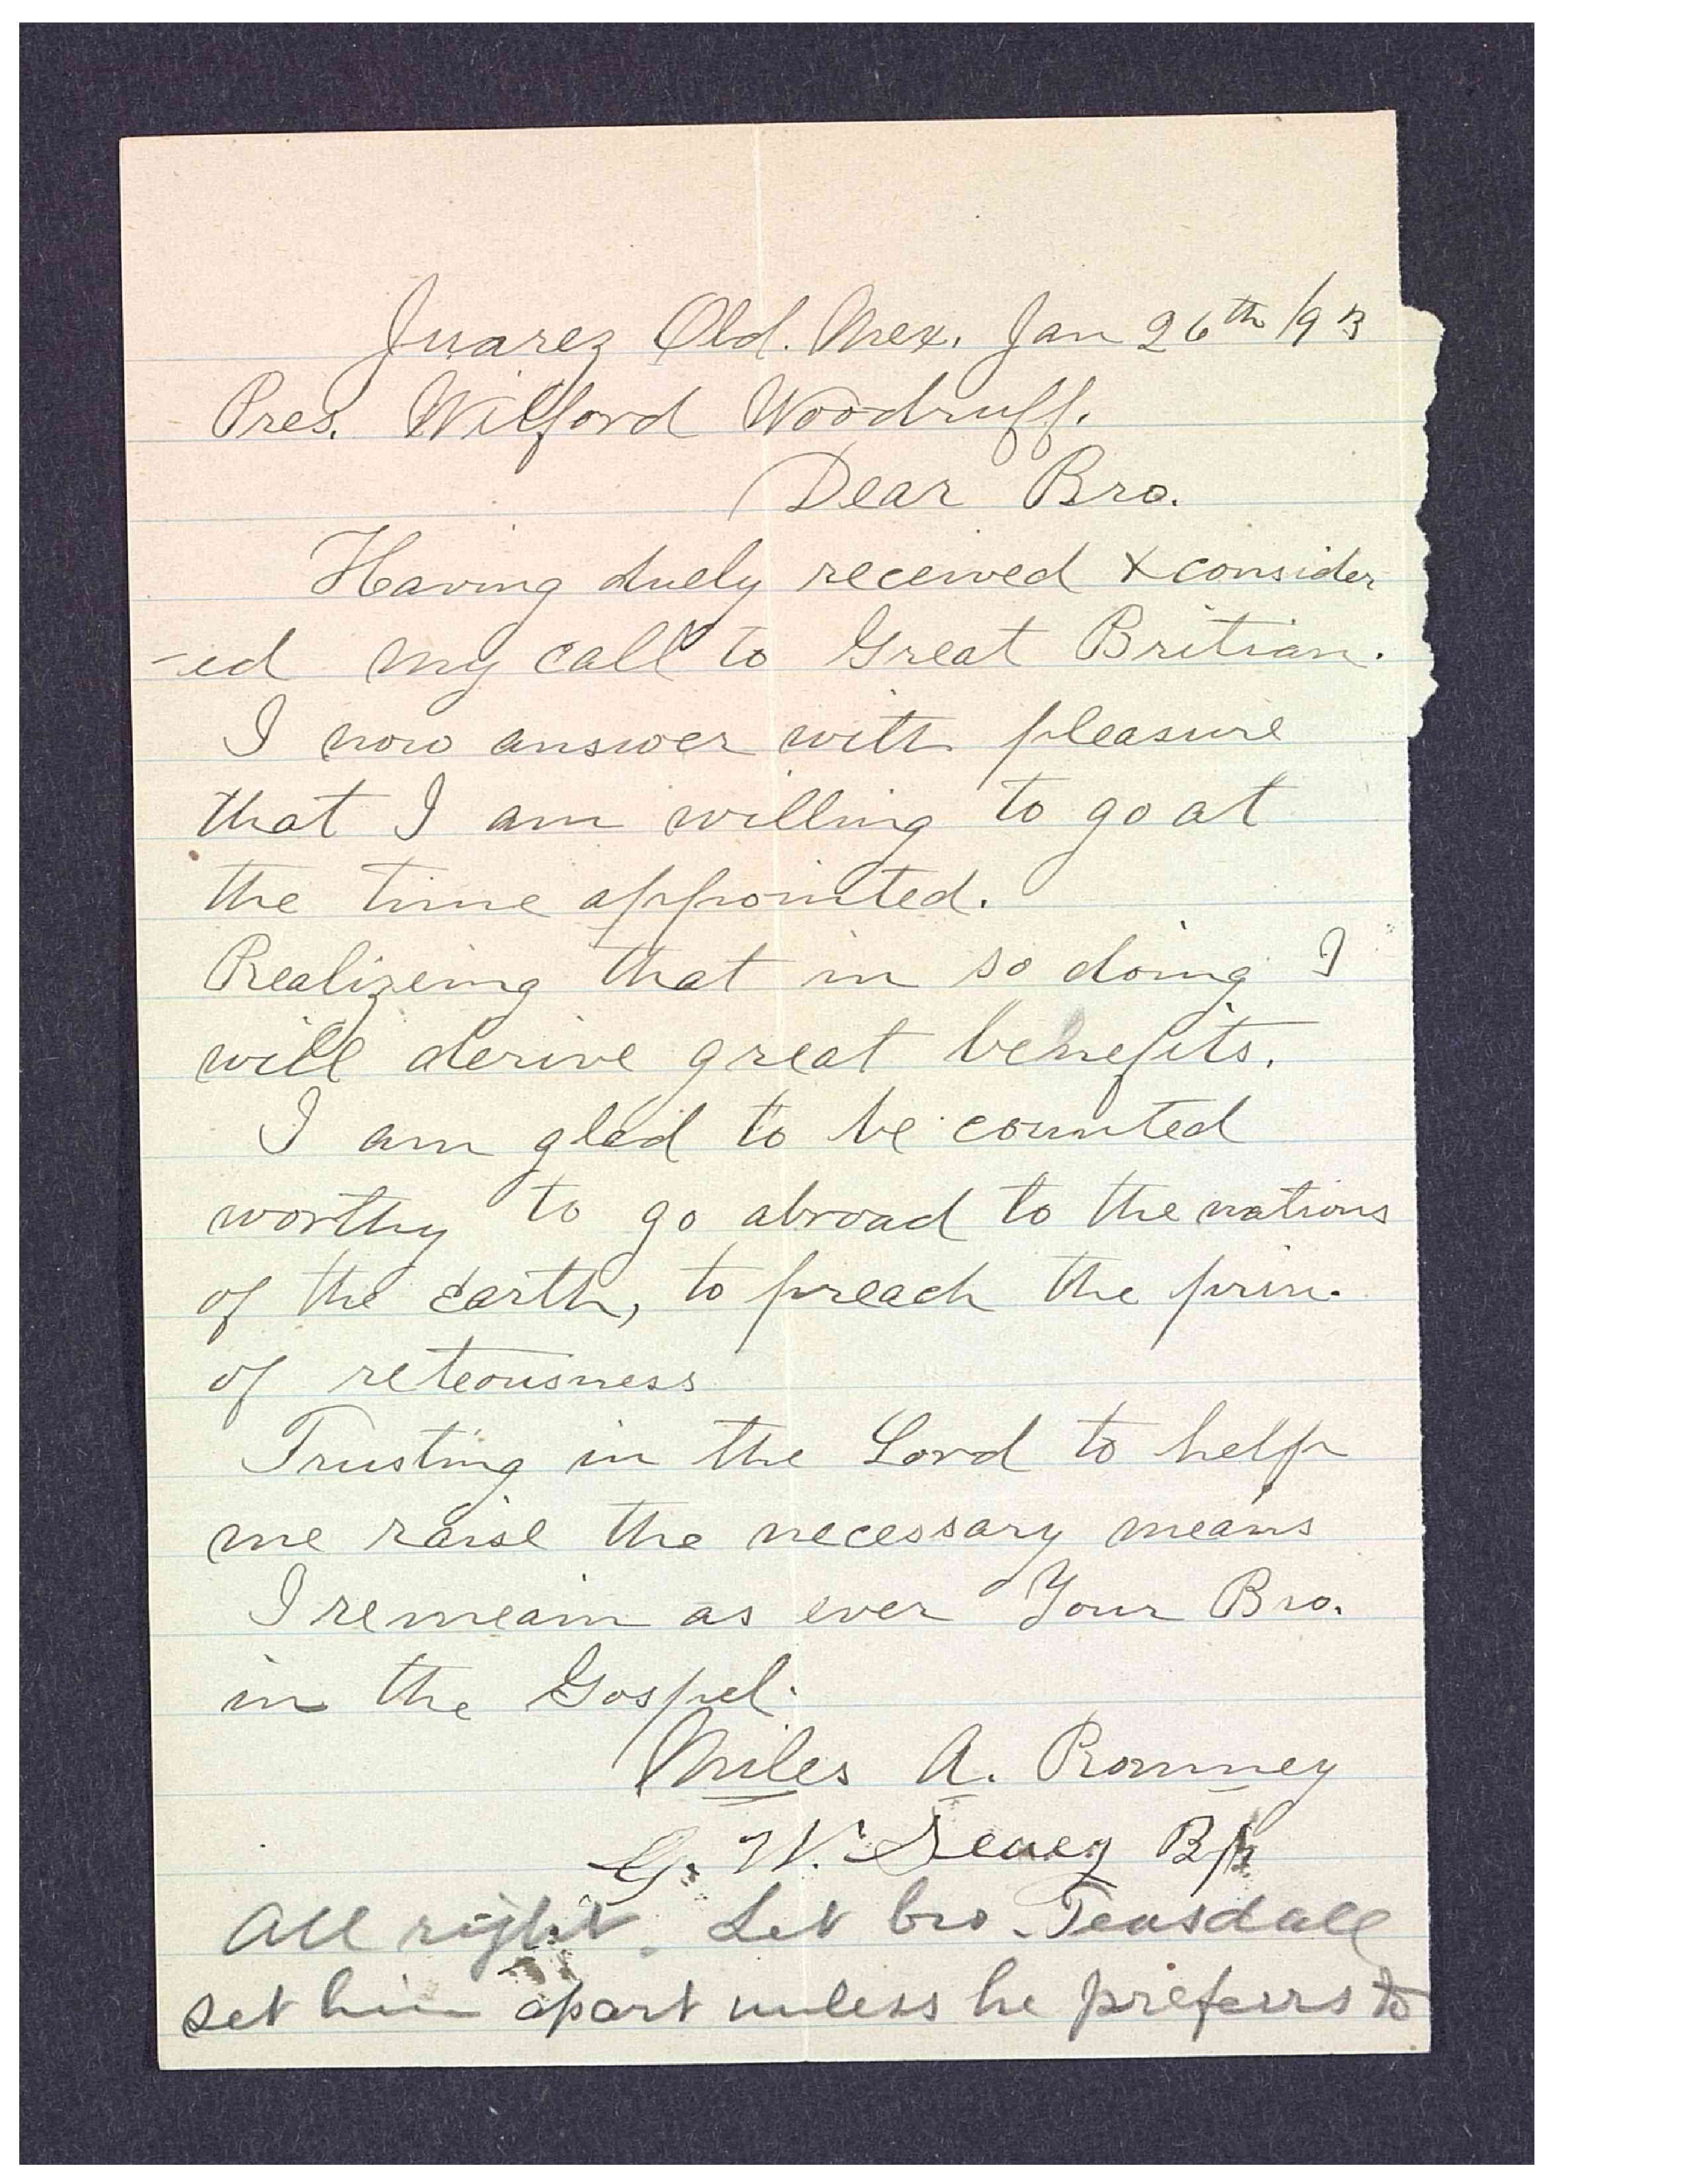 Juarez Old. Mex. Jan 26th /93
Pres. Wilford Woodruff.
Dear Bro.
Having duely received & consider
-ed my call to Great Britian.
I now answer with pleasure
that I am willing to go at
the time appointed.
Realizeing that in so doing I
will derive great benefits.
I am glad to be counted
worthy to go abroad to the nations
of the earth, to preach the prin.
of reteousness
Trusting in the Lord to help
me raise the necessary means
I remeain as ever Your Bro.
in the Gospel.
Miles A. Romney
G. W. Sevey Bp
All right. Let bro. Teasdale
set him apart unless he preferrs to